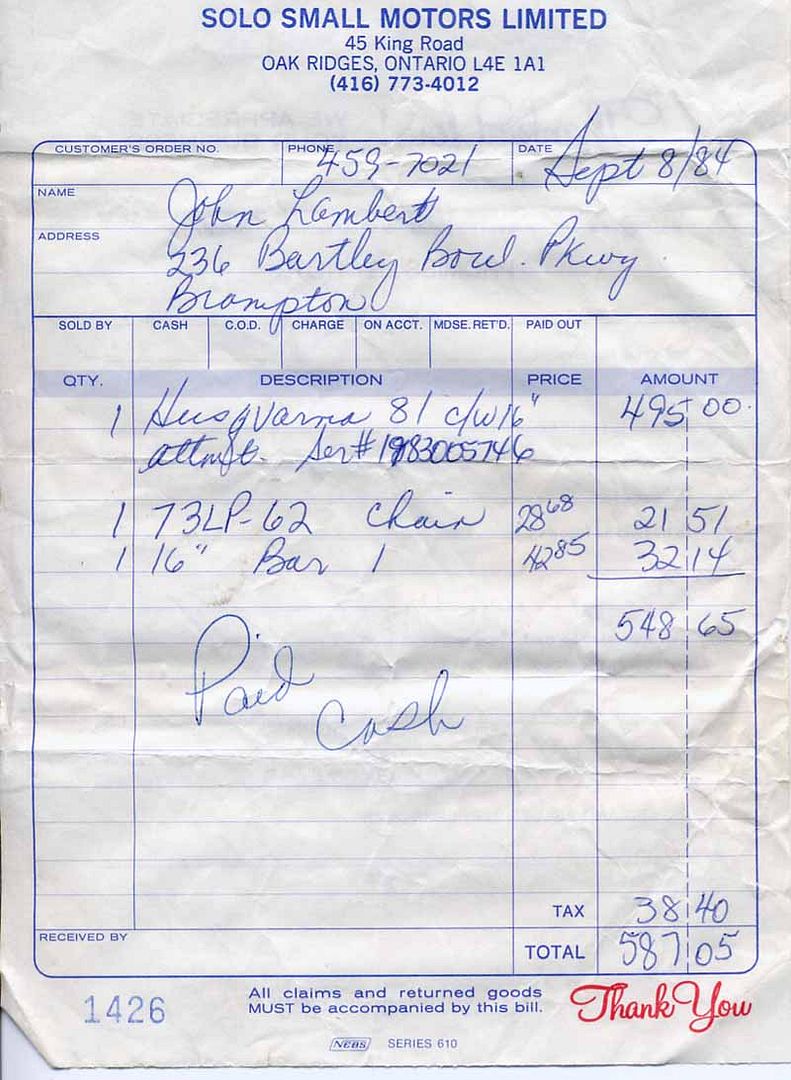 SOLO SMALL MOTORS LIMITED
45 King Road
OAK RIDGES, ONTARIO L4E 1A1
(416) 773-4012
CUSTOMER'S ORDER NO. PHONE 459-7021 DATE Sept 8/84
NAME John Lambert
ADDRESS 236 Bartley Boul. Pkwy
Brampton
SOLD BY CASH C.O.D. CHARGE ON ACCT. MDSE. RET'D. PAID OUT
QTY. DESCRIPTION PRICE AMOUNT
1 Husqvarna 81 c/w 16" 495 00
attmt. Ser# 1983005746
1 73LP-62 Chain 28 68 21 51
1 16" Bar 1 42 85 32 14
548 65
Paid
Cash
TAX 38 40
RECEIVED BY
TOTAL 587 05
1426
All claims and returned goods
MUST be accompanied by this bill.
Thank You
NEBS SERIES 610